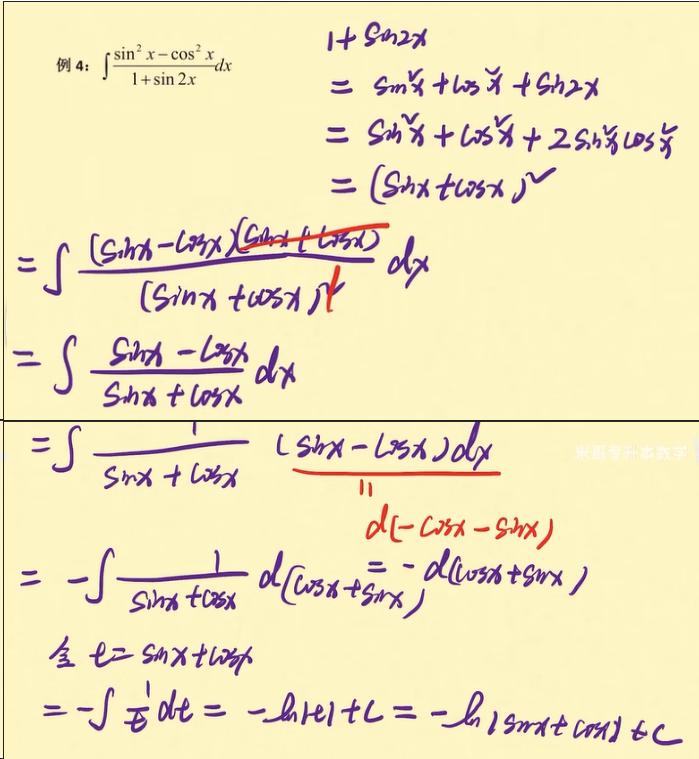 例 4: ∫ (sin² x − cos² x)/(1 + sin 2x) dx
1 + sin2x
= sin²x + cos²x + sin2x
= sin²x + cos²x + 2sin²x cos²x
= (sinx + cosx)²
= ∫ (sinx − cosx)(sinx + cosx)/(sinx + cosx)² dx
= ∫ (sinx − cosx)/(sinx + cosx) dx
= ∫ 1/(sinx + cosx) (sinx − cosx)dx
=
d(−cosx − sinx)
= −d(cosx + sinx)
= −∫ 1/(sinx + cosx) d(cosx + sinx)
令 t = sinx + cosx
= −∫ 1/t dt = −ln|t| + C = −ln|sinx + cosx| + C